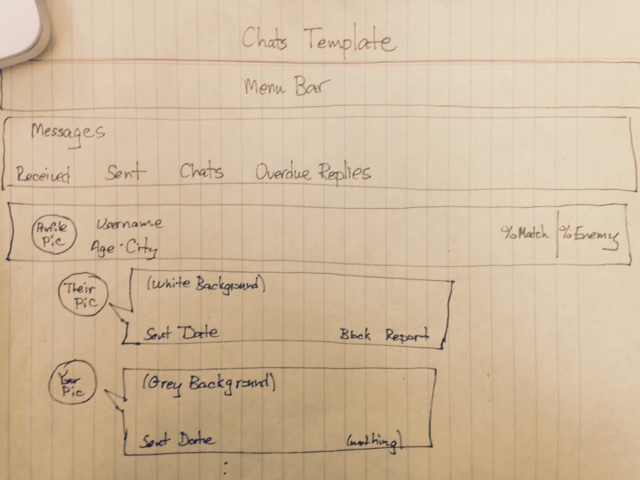 Chats Template
Menu Bar
Messages
Received Sent Chats Overdue Replies
Profile Pic
Username
Age · City
% Match | % Enemy
Their Pic
(White Background)
Sent Date Block Report
Your Pic
(Grey Background)
Sent Date (nothing)
: